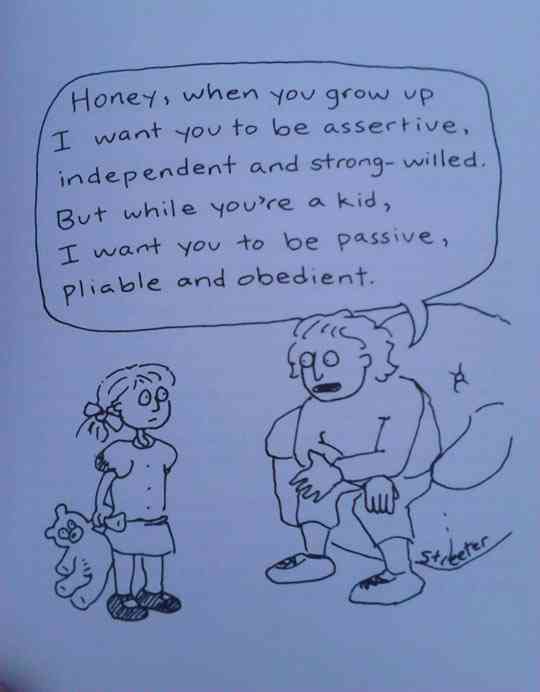 Honey, when you grow up
I want you to be assertive,
independent and strong-willed.
But while you're a kid,
I want you to be passive,
pliable and obedient.
Streeter